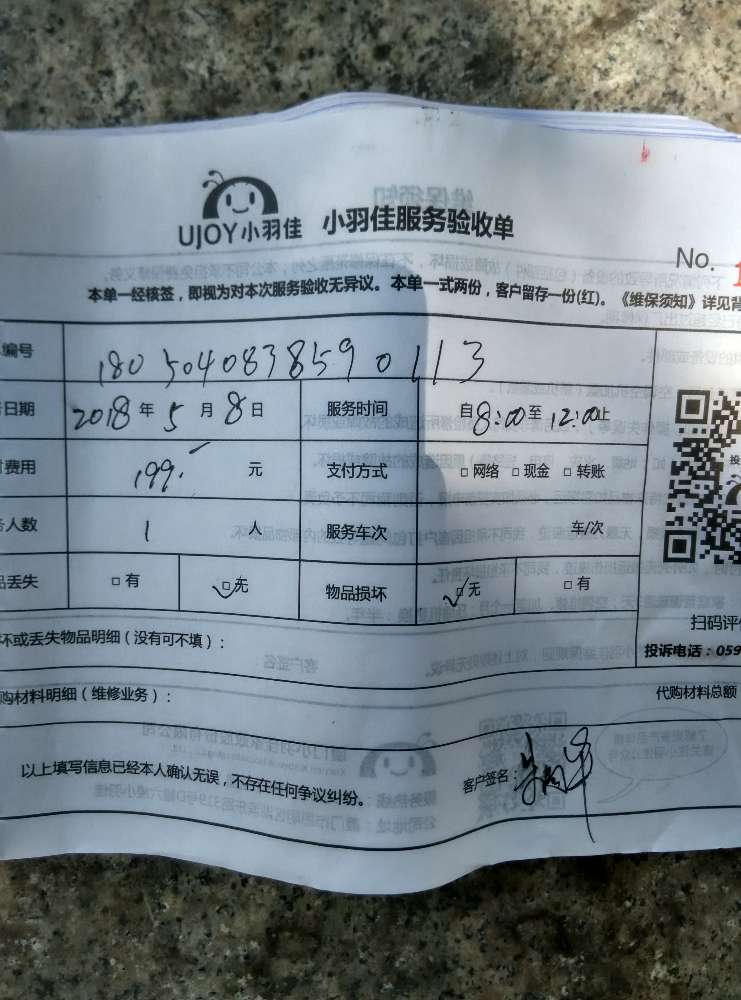 UJOY小羽佳 小羽佳服务验收单
No. 1
本单一经核签，即视为对本次服务验收无异议。本单一式两份，客户留存一份(红)。《维保须知》详见背
编号 1805040838590113
日期 2018年5月8日 服务时间 自8:00至12:00止
费用 199. 元 支付方式 □网络 □现金 □转账
人数 1 人 服务车次 车/次
品丢失 □有 □无 物品损坏 □无 □有
扫码评价
坏或丢失物品明细（没有可不填）：
投诉电话：059
购材料明细（维修业务）： 代购材料总额
以上填写信息已经本人确认无误，不存在任何争议纠纷。 客户签名：